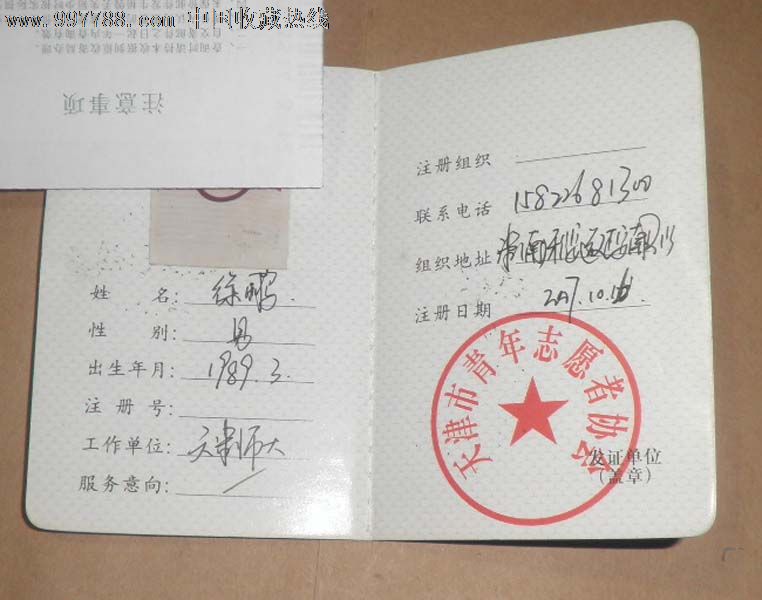 www.997788.com 中国收藏热线
注意事项
姓 名: 徐鹏
性 别: 男
出生年月: 1989.3.
注 册 号:
工作单位: 天津师大
服务意向:
注册组织
联系电话 15822681300
组织地址
注册日期 2007.10.
天津市青年志愿者协会
发证单位
(盖章)